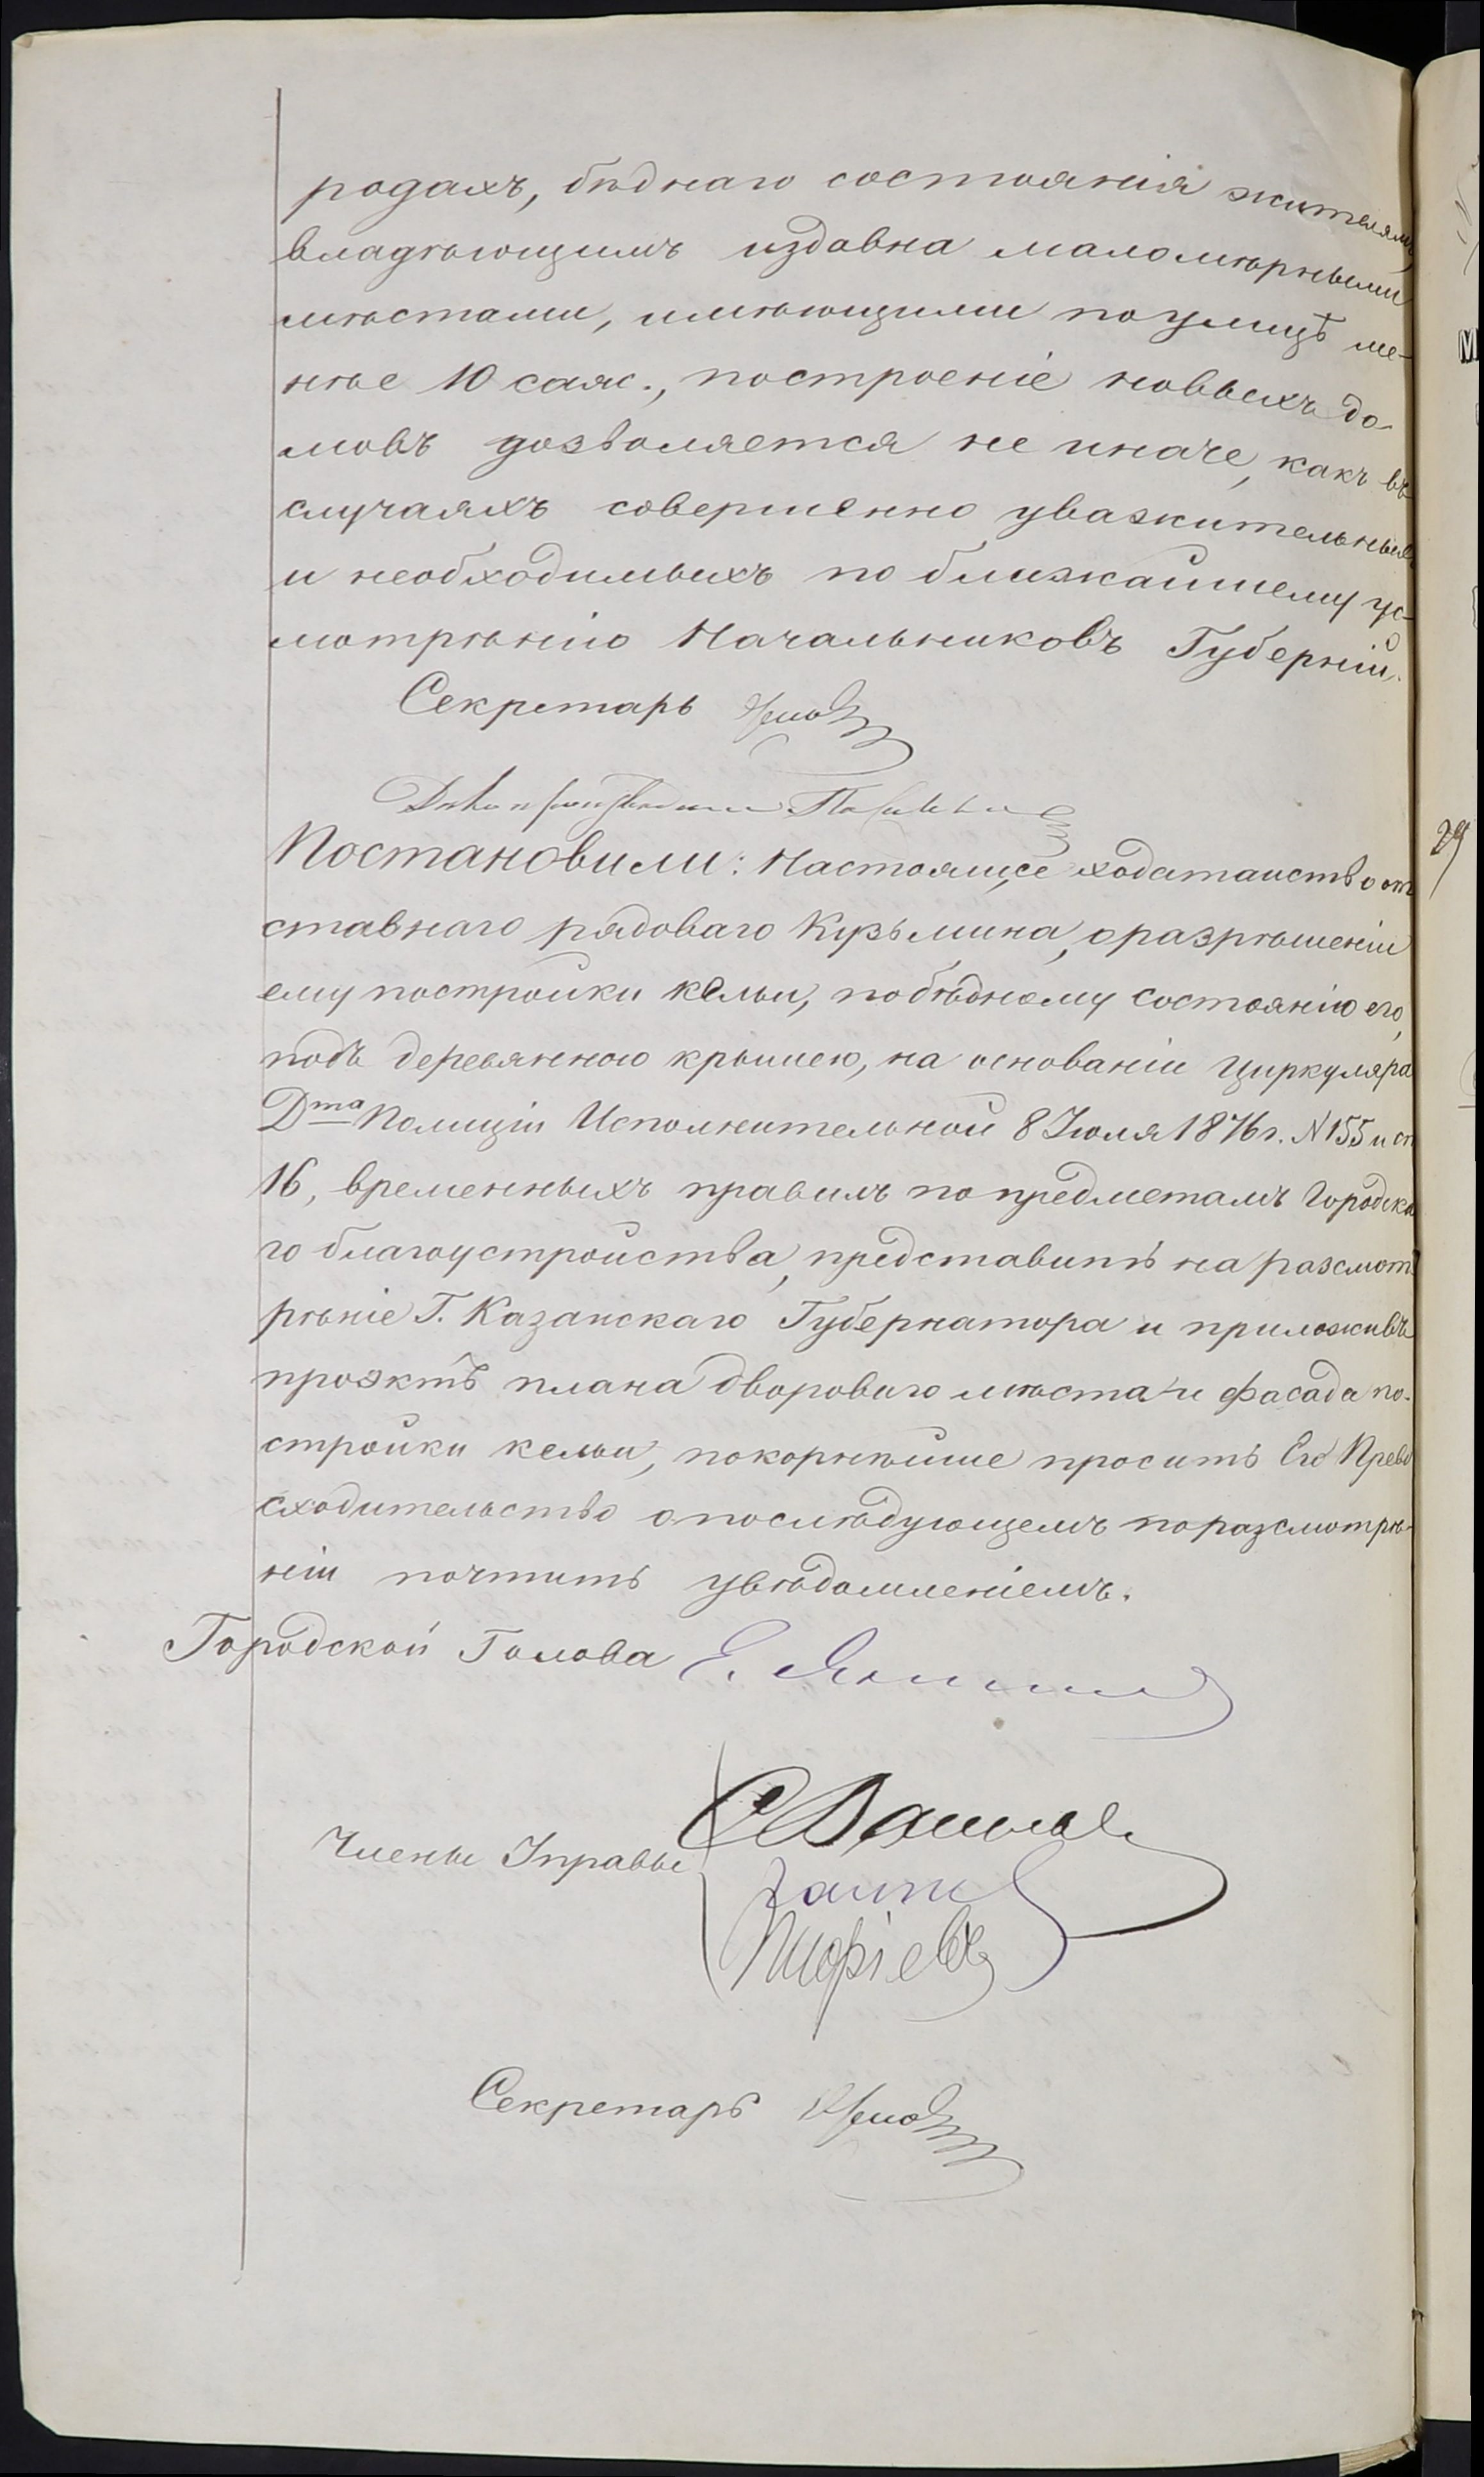 родахъ, бѣднаго состоянія жителямъ,
владѣющимъ издавна маломѣрными
мѣстами, имѣющими по улицѣ ме-
нѣе 10 саж., построеніе новыхъ до-
мовъ дозволяется не иначе, какъ въ
случаяхъ совершенно уважительныхъ
и необходимыхъ по ближайшему ус-
мотрѣнію Начальниковъ Губерній.
Секретарь
Постановили: Настоящее ходатайство от
ставнаго рядоваго Кузьмина, о разрѣшеніи
ему постройки кельи, по бѣдному состоянію его,
подъ деревянною крышею, на основаніи циркуляра
Дта Полиціи Исполнительной 8 Іюля 1876 г. N 155 и ст
16, временныхъ правилъ по предметамъ Городска
го благоустройства, представить на разсмот
рѣніе Г. Казанскаго Губернатора и приложивъ
проэктъ плана двороваго мѣста и фасада по-
стройки кельи, покорнѣйше просить Его Прево
сходительство о послѣдующемъ по разсмотрѣ-
ніи почтить увѣдомленіемъ.
Городской Голова Е.
Члены Управы
Секретарь
29